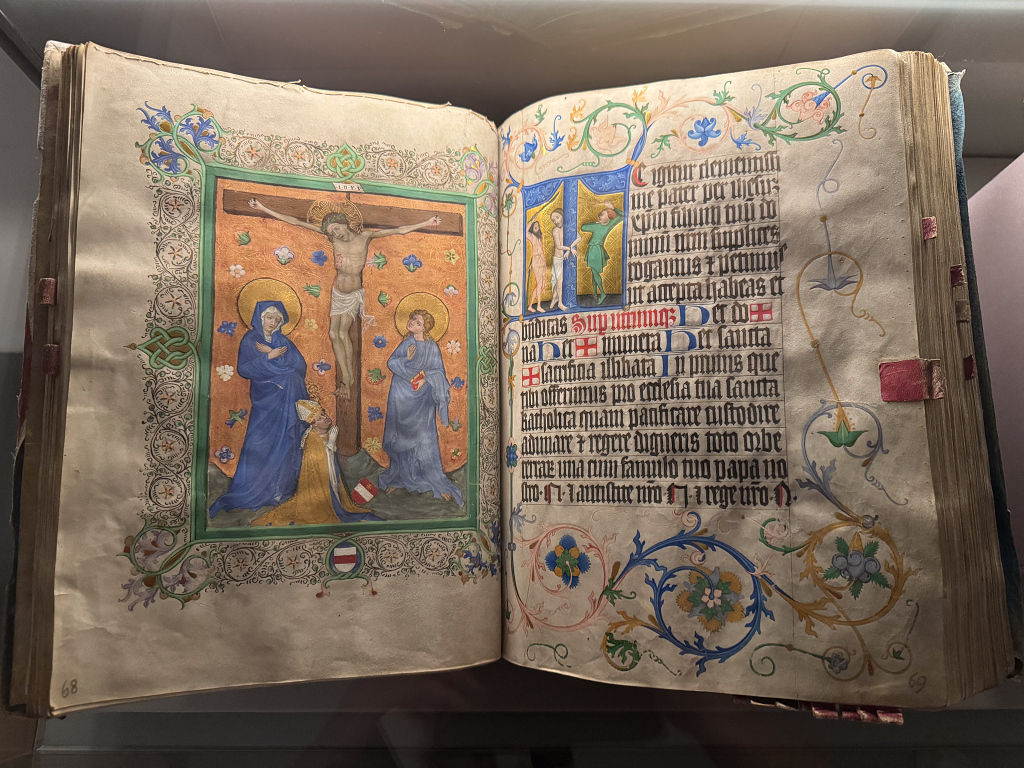 INRI
Te igitur clementissi
me pater per
filium tuum do
supplices
rogamus ⁊ petimus
uti accepta habeas et
bndicas Sup utrumqz Hec do
na Hec ✠ munera Hec sancta
✠ sacrificia illibata In primis que
tibi offerimus pro ecclesia tua sancta
katholica quam pacificare custodire
adunare ⁊ regere digneris toto orbe
terrar una cum famulo tuo papa no
stro · N · ⁊ antistite nro N ⁊ rege nro N
68
69